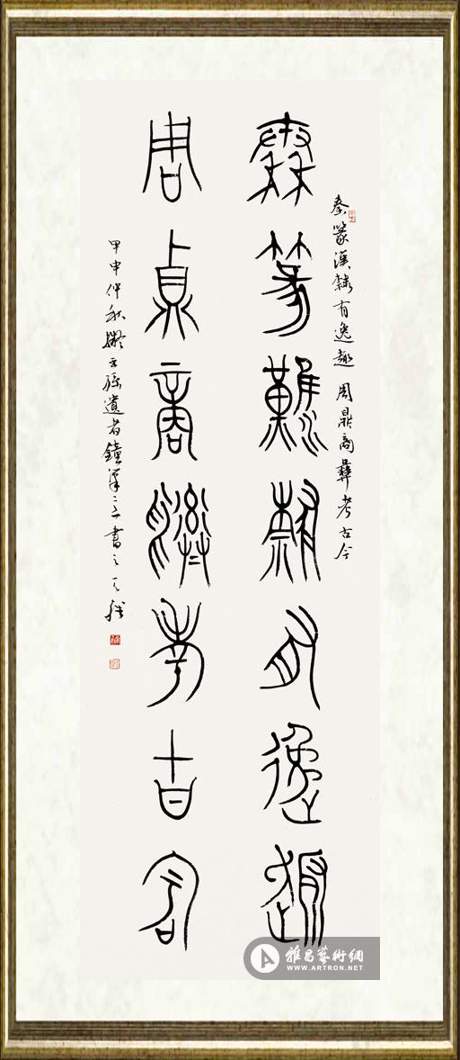 秦篆漢隸有逸趣
周鼎商彝考古今
秦篆漢隸有逸趣 周鼎商彝考古今
甲申仲秋
書之
雅昌藝術網
WWW.ARTRON.NET